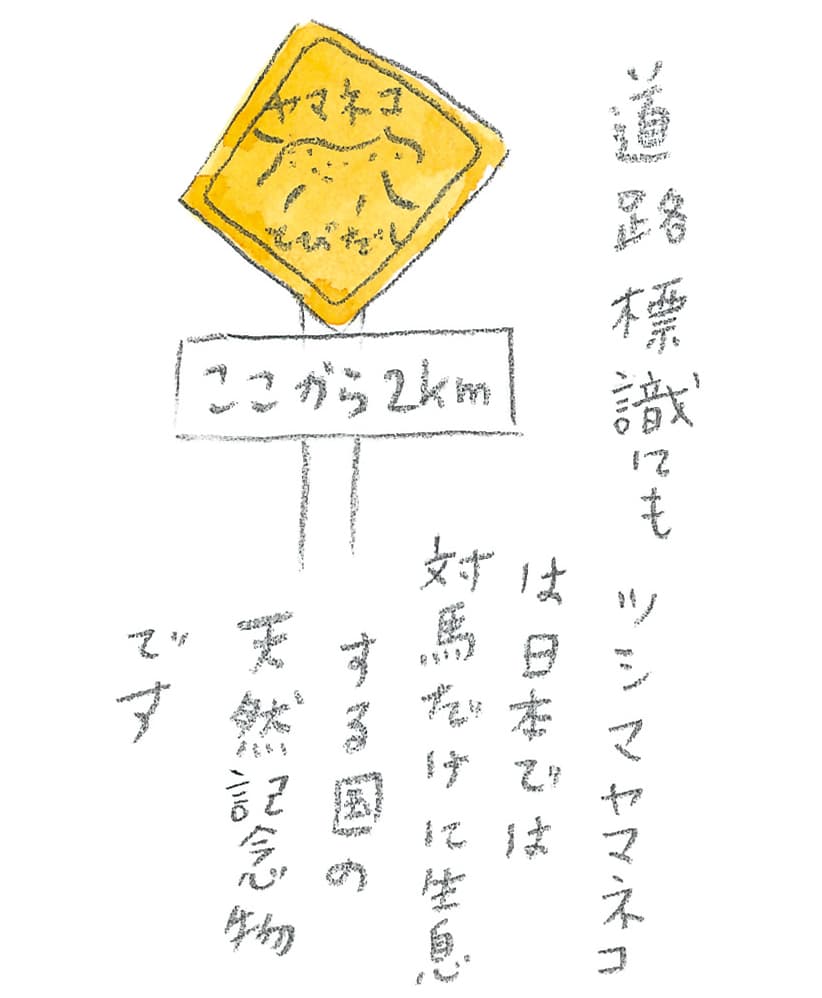 道路標識にも
ツシマヤマネコ
は日本では
対馬だけに生息
する国の
天然記念物
です
ヤマネコ
とびだし
ここから2km